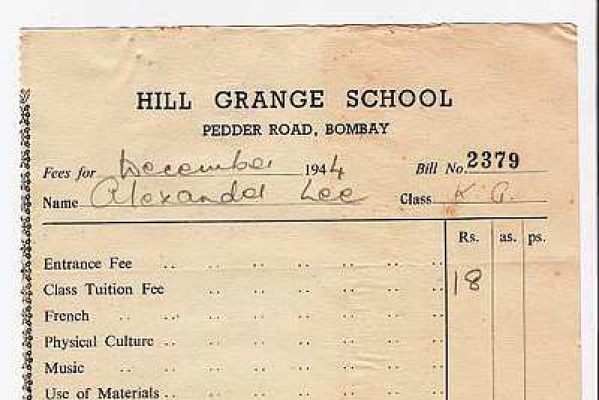 HILL GRANGE SCHOOL
PEDDER ROAD, BOMBAY
Fees for December 1944 Bill No. 2379
Name Alexander Lee Class K G.
Rs. as. ps.
Entrance Fee .. .. .. .. .. .. ..
Class Tuition Fee .. .. .. .. .. .. 18
French .. .. .. .. .. .. .. ..
Physical Culture .. .. .. .. .. .. ..
Music .. .. .. .. .. .. .. ..
Use of Materials .. .. .. .. .. .. ..